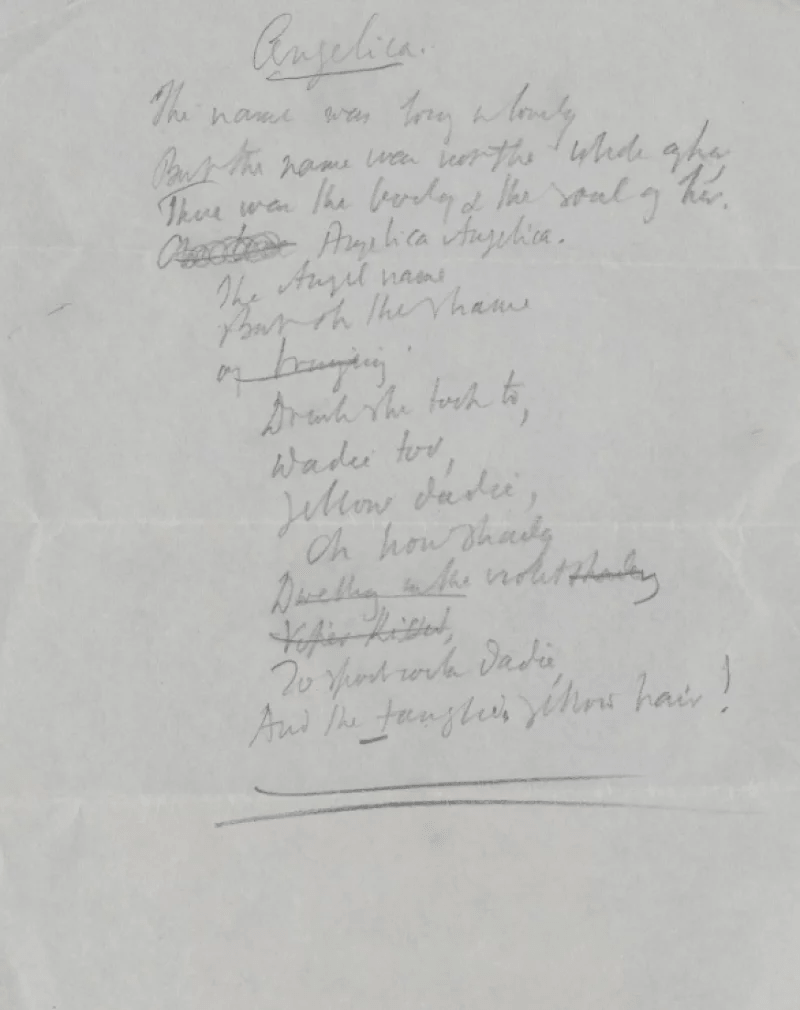 Angelica.
The name was long & lovely
But the name was not the whole of her
There was the body & the soul of her.
Angelica Angelica.
The Angel name
But oh the shame
of bringing
Drink she took to,
Wadie too,
Yellow dadie,
Oh how shady
Dwelling in the violet shady
To sport with dadie
And the tangled yellow hair!